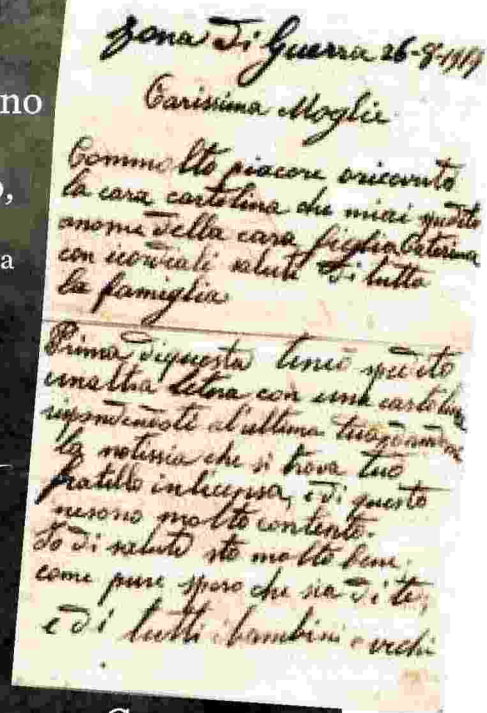 no
o,
a
Zona Di Guerra 26-8-1919
Carissima Moglie
Commolto piacere oricevuto
la cara cartolina che miai spedito
anome della cara figlia Caterina
con icordiali saluti di tutta
la famiglia
Prima diquesta tenio spedito
unaltra letera con una cartolina
al'ultima
la notissia che si trova tuo
fratello inlicensa, e di questo
nesono molto contento.
Io di salute sto molto bene,
come pure spero che sia di te,
e di tutti i bambini e vechi